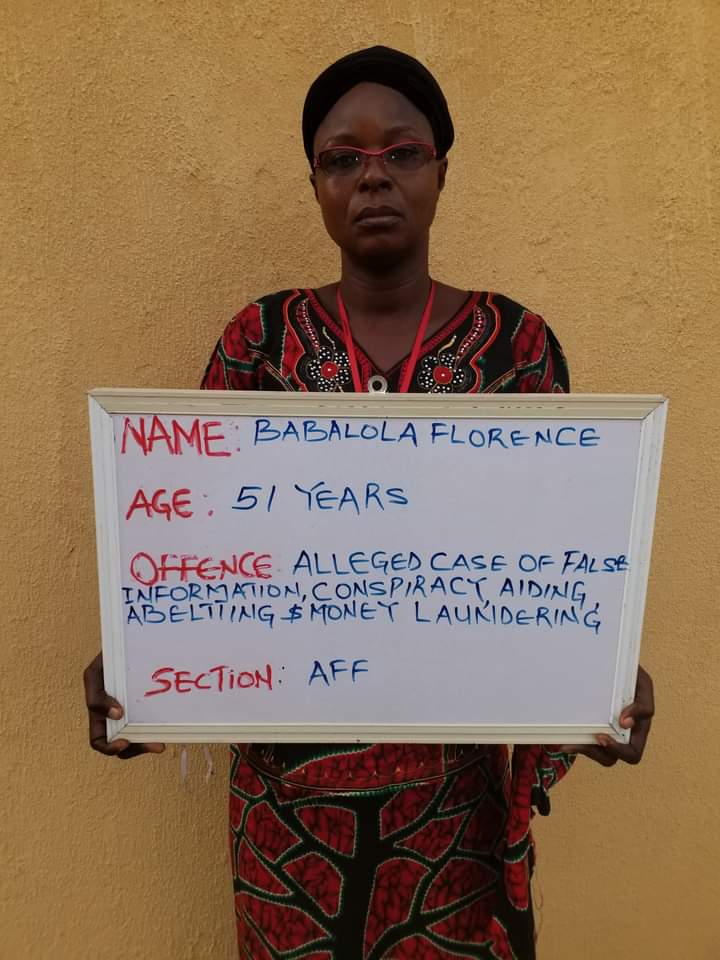 NAME: BABALOLA FLORENCE
AGE: 51 YEARS
OFFENCE ALLEGED CASE OF FALSE
INFORMATION, CONSPIRACY, AIDING,
ABELTTING $ MONEY LAUNDERING
SECTION: AFF